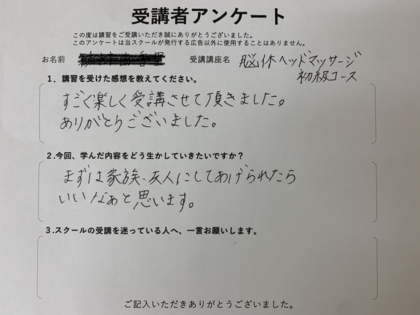 受講者アンケート
この度は講習をご受講いただき誠にありがとうございました。
このアンケートは当スクールが発行する広告以外に使用することはありません。
お名前 受講講座名 脳休ヘッドマッサージ
初級コース
1、講習を受けた感想を教えてください。
すごく楽しく受講させて頂きました。
ありがとうございました。
2.今回、学んだ内容をどう生かしていきたいですか？
まずは家族、友人にしてあげられたら
いいなあと思います。
3.スクールの受講を迷っている人へ、一言お願いします。
ご記入いただきありがとうございました。